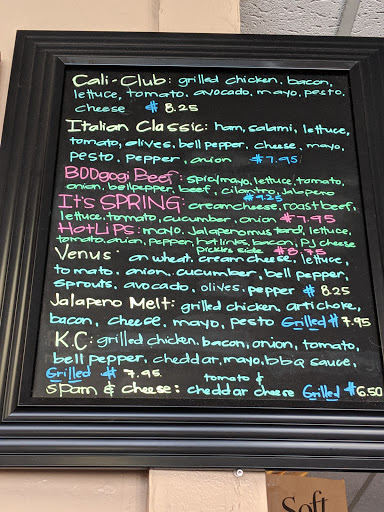 Cali-Club: grilled chicken, bacon,
lettuce, tomato, avocado, mayo, pesto,
cheese $8.25
Italian Classic: ham, salami, lettuce,
tomato, olives, bell pepper, cheese, mayo,
pesto, pepper, onion $7.95
BOOgogi Beef: spicy mayo, lettuce, tomato,
onion, bell pepper, beef, cilantro, jalapeno
$9.25
It's SPRING: cream cheese, roast beef,
lettuce, tomato, cucumber, onion $7.95
HotLiPS: mayo, Jalapeno mustard, lettuce,
tomato, onion, pepper, hot links, bacon, PJ cheese
pickles side $8.75
Venus: on wheat, cream cheese, lettuce,
tomato, onion, cucumber, bell pepper,
sprouts, avocado, olives, pepper $8.25
Jalapeno Melt: grilled chicken, artichoke,
bacon, cheese, mayo, pesto Grilled $7.95
K.C: grilled chicken, bacon, onion, tomato,
bell pepper, cheddar, mayo, bbq sauce,
Grilled $7.95
tomato &
Spam & Cheese: cheddar cheese Grilled $6.50
Soft